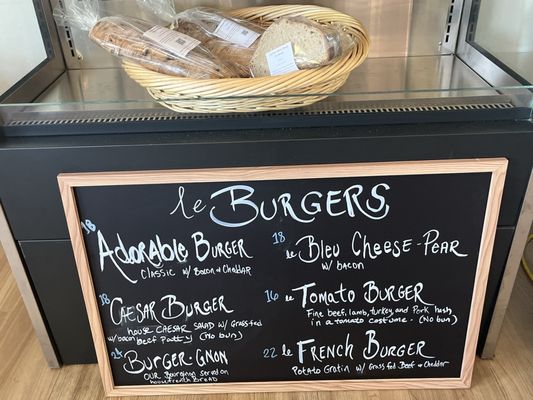 le Burgers
18
Adorable Burger
Classic w/ Bacon & Cheddar
18
Caesar Burger
House Caesar Salad w/ Grassfed
w/bacon Beef Patty (No bun)
Burger-Gnon
Our Bourginon served on
house french bread
18
le Bleu Cheese-Pear
w/ bacon
16
le Tomato Burger
Fine beef, lamb, turkey, and Pork hash
in a tomato costume. (No bun)
22
le French Burger
Potato Gratin w/ Grass Fed Beef & Cheddar